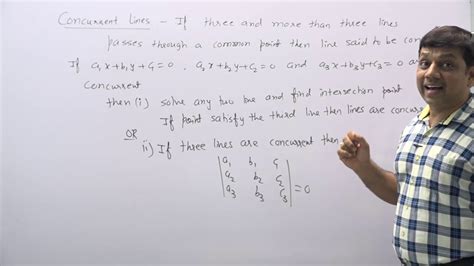 Concurrent Lines - If three and more than three lines
passes through a common point then line said to be con
If a₁x+b₁y+c₁=0, a₂x+b₂y+c₂=0 and a₃x+b₃y+c₃=0 a
Concurrent
then (i) solve any two line and find intersection point
If point satisfy the third line then lines are concurr
OR
ii) If three lines are concurrent then
| a₁ b₁ c₁ |
| a₂ b₂ c₂ |
| a₃ b₃ c₃ | =0